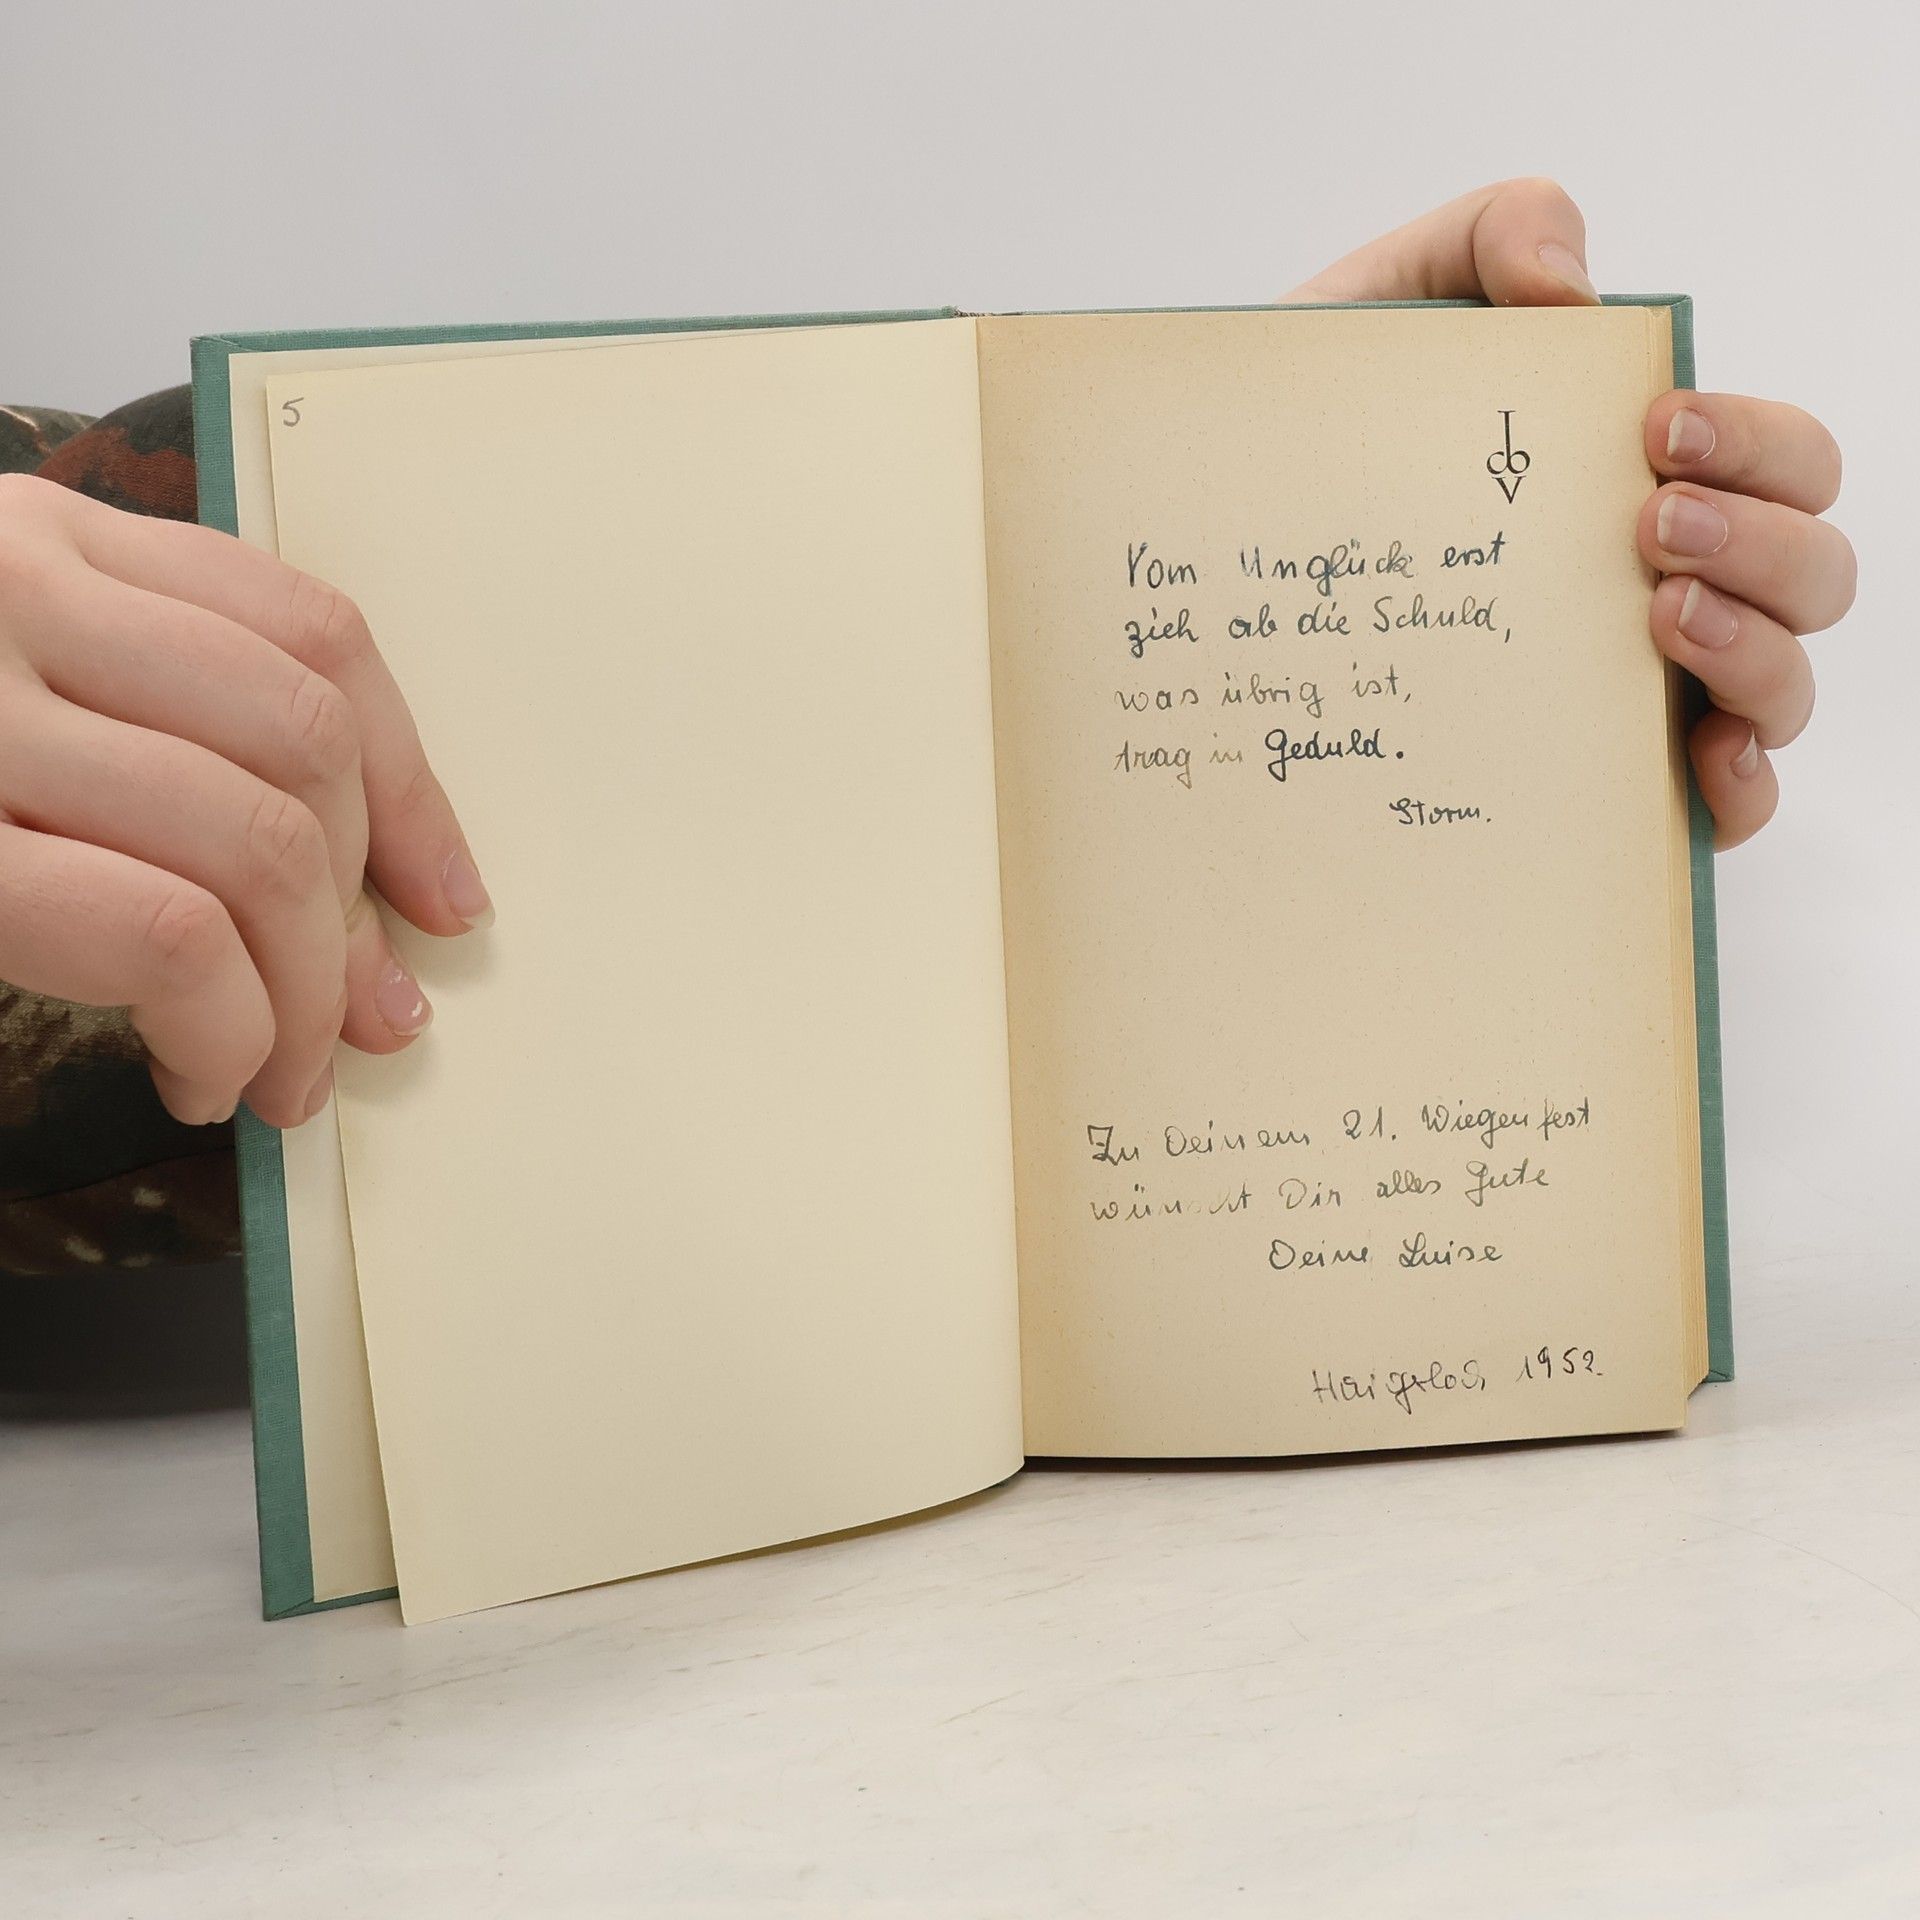 5
Vom Unglück erst
zieh ab die Schuld,
was übrig ist,
trag in Geduld.
Storm.
Zu Deinem 21. Wiegenfest
wünscht Dir alles Gute
Deine Luise
Haigerloch 1952.